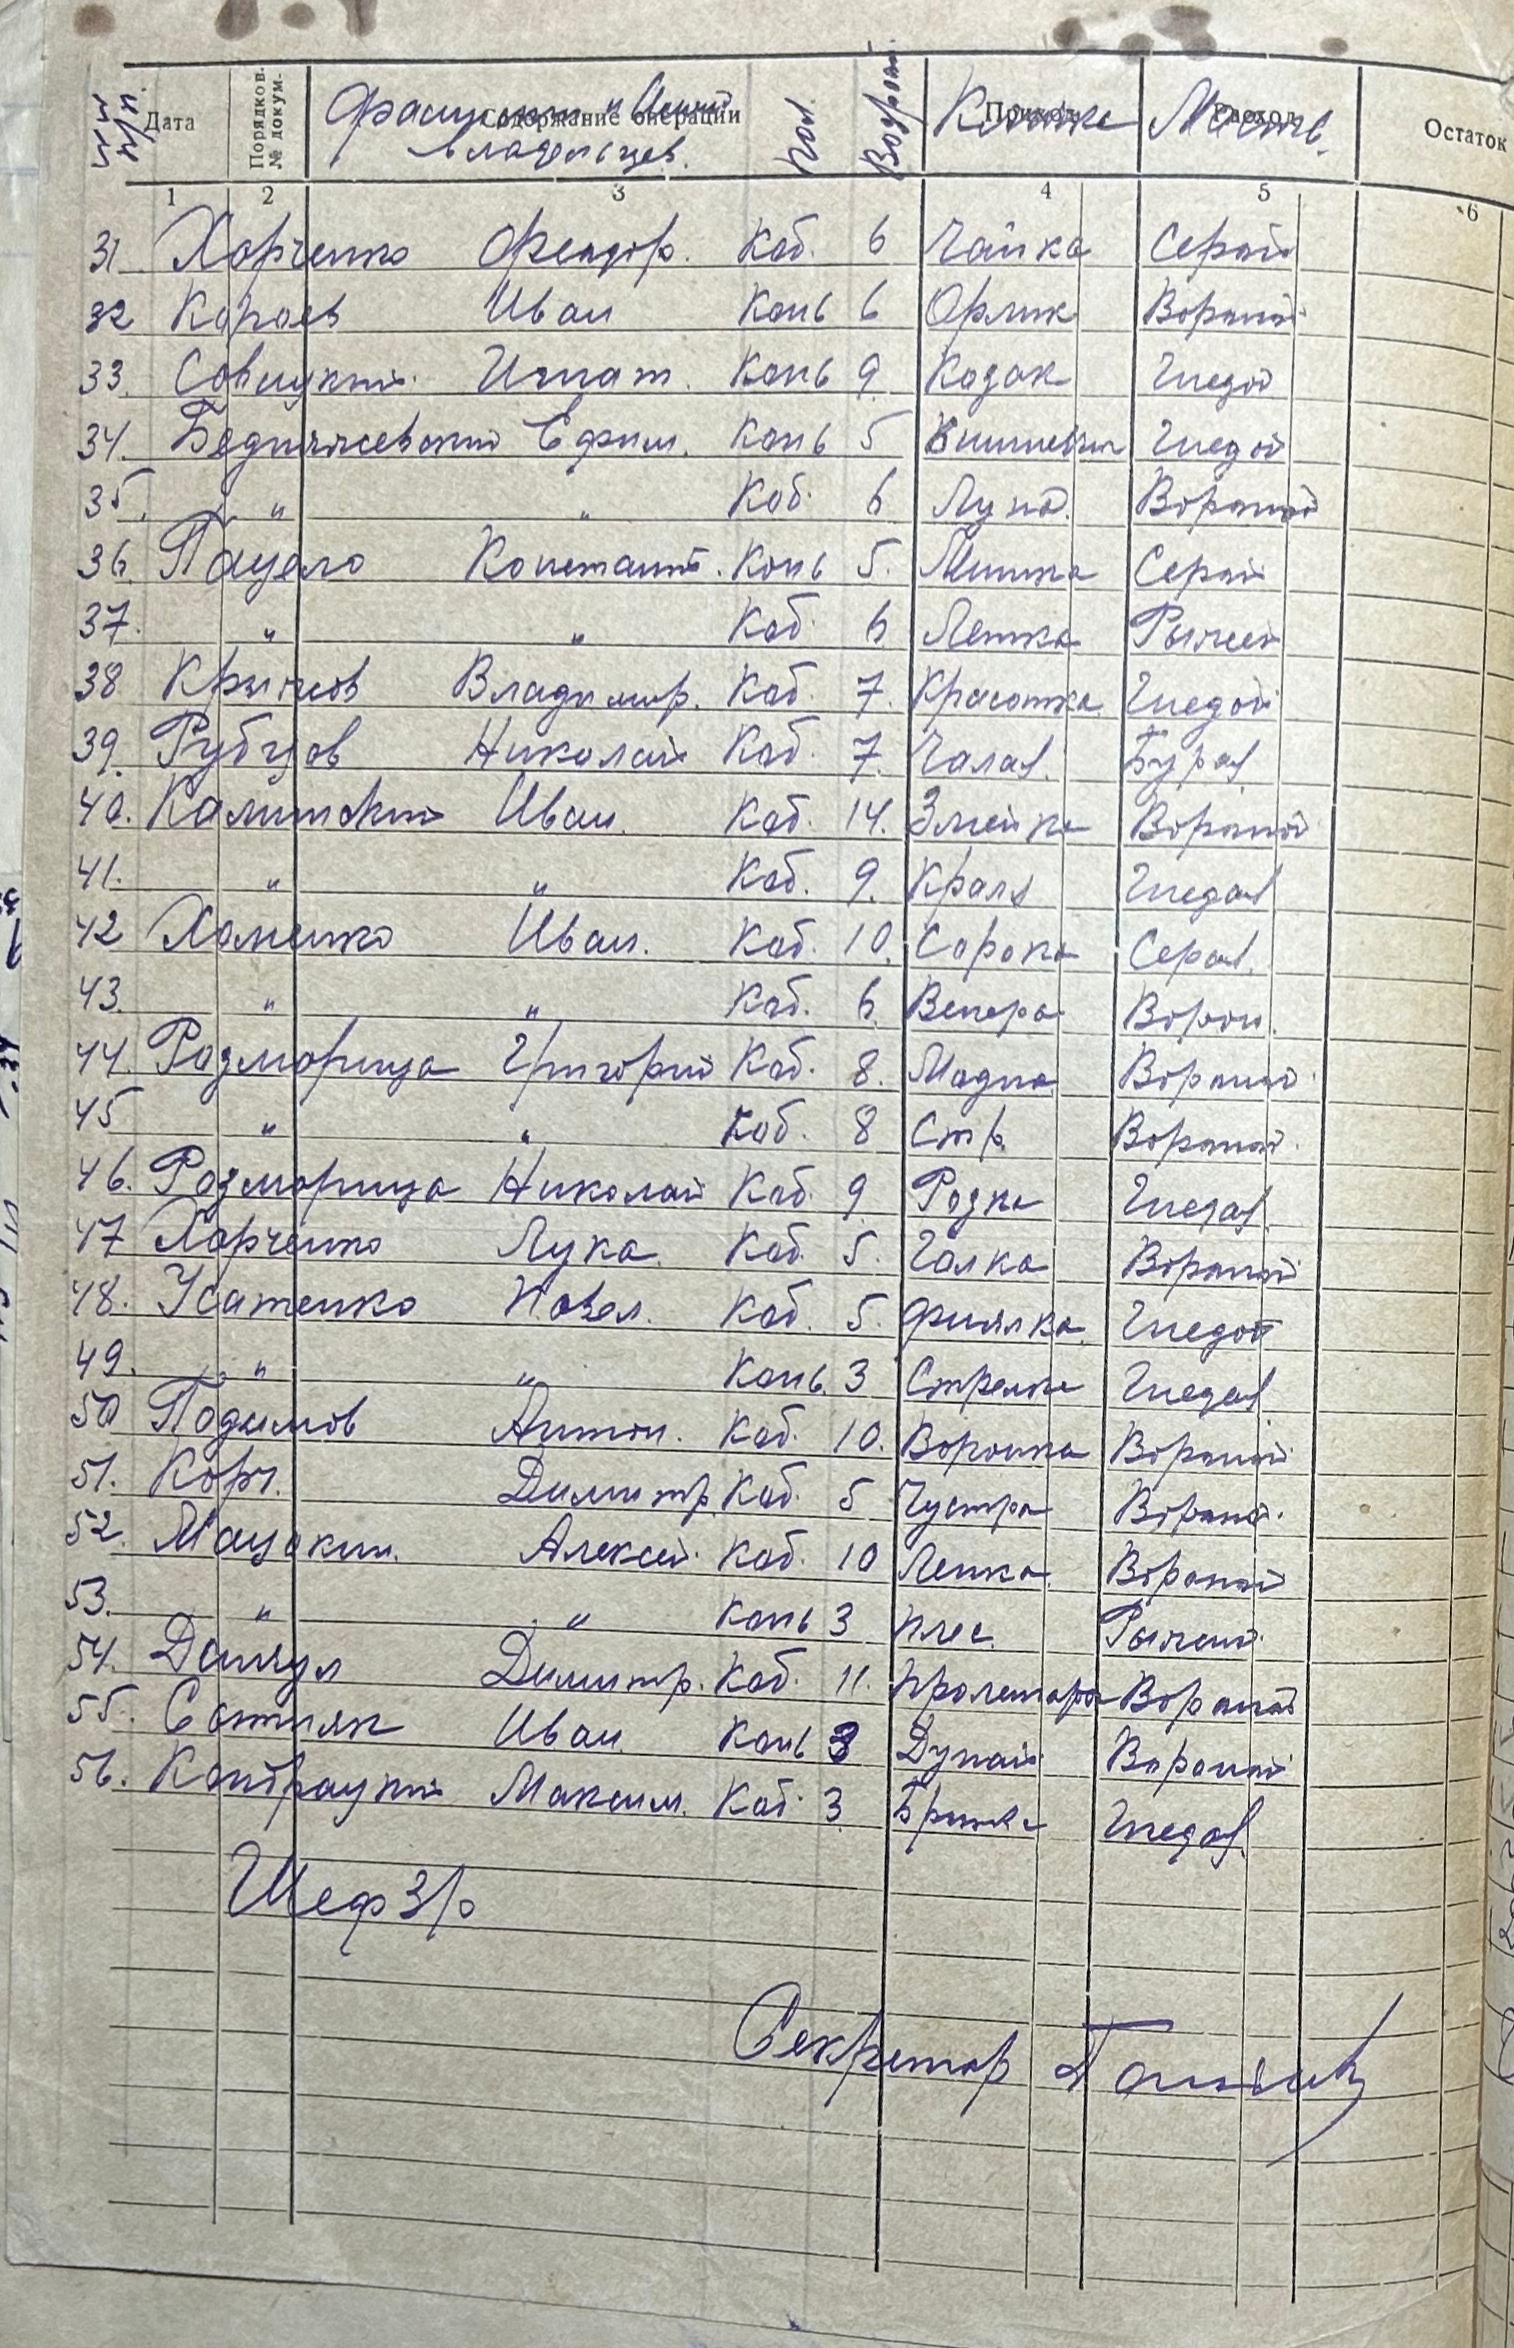 №№ п/п. Дата Порядков. № докум. Содержание операции Фамилии и Имена Пол Возраст Приход Кличка Расход Масть. Остаток
владельцев.
1 2 3 4 5 6
31 Харченко Феодор. Каб. 6 Чайка Серай
32 Караев Иван Конь 6 Орлик Вороной
33. Савицкий Игнат. Конь 9. Кодак Гнедой
34. Беднячевский Ефим. Конь 5 Гнедой
35. " " Каб. 6 Луна. Вороной
36. Пацело Констант. Конь 5. Мишка Серай
37. " " Каб. 6 Летка Рыжей
38 Крыжов Владимир. Каб. 7. Красотка Гнедой
39. Рубцов Николай Каб. 7. Чалая. Бурая
40. Калинский Иван. Каб. 14. Змейка Вороной
41. " " Каб. 9. Краля Гнедая
42 Хоменко Иван. Каб. 10. Сорока Серая.
43. " " Каб. 6. Венера Ворон.
44. Разморица Григорий Каб. 8. Мадна Вороной
45 " " Каб. 8 Вороной.
46. Разморица Николай Каб. 9. Родка Гнедая.
47 Харченко Лука. Каб. 5. Галка Вороной
48. Усатенко Павел. Каб. 5. Фиялка. Гнедой
49. " " Конь. 3 Стрелка Гнедая
50 Подымов Антон. Каб. 10. Воронка Вороной
51. Корч. Димитр. Каб. 5 Вороной.
52. Мацокин. Алексей. Каб. 10 Ленка. Вороной
53. " " Конь 3 Рыжей.
54. Данядл Димитр. Каб. 11. Пролетарка Вороной
55. Сотняк Иван. Конь 3 Дунай Вороной
56. Контрацкий Максим. Каб. 3. Гнедая.
Шеф З/о
Секретар